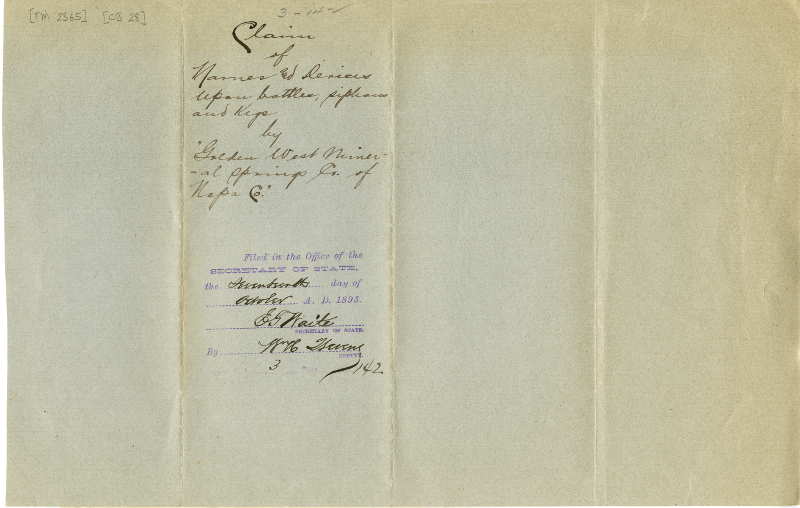 [TM 2365] [OB 28]
3-142
Claim
of
Names & Devices
upon bottles, siphons
and Kegs
by
"Golden West Miner-
-al Springs Co. of
Napa Co."
Filed in the Office of the
SECRETARY OF STATE,
the Seventeenth day of
October A. D. 1893.
E G Waite
SECRETARY OF STATE.
By Wm H
DEPUTY.
3 142